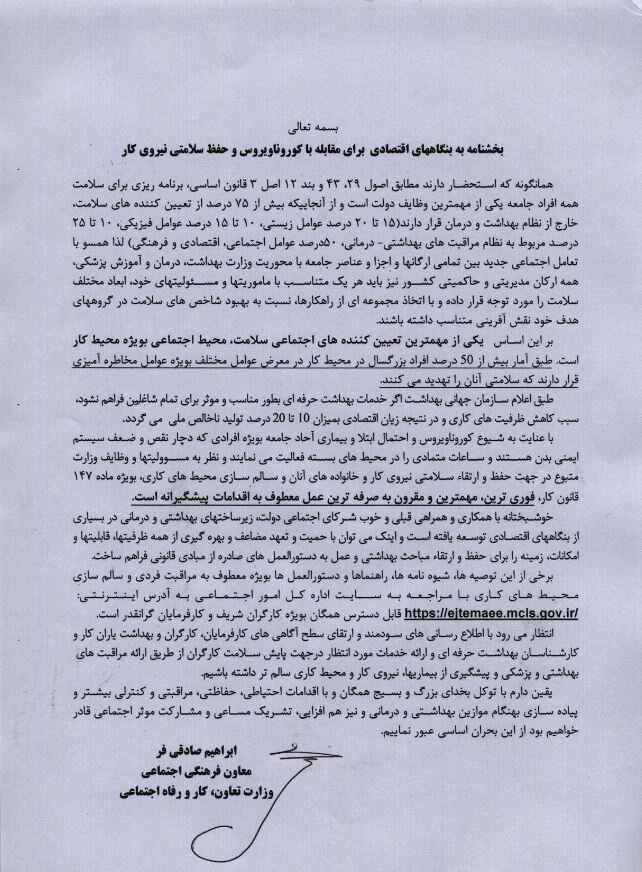 بسمه تعالی
بخشنامه به بنگاههای اقتصادی برای مقابله با کوروناویروس و حفظ سلامتی نیروی کار
همانگونه که استحضار دارند مطابق اصول ۲۹، ۴۳ و بند ۱۲ اصل ۳ قانون اساسی، برنامه ریزی برای سلامت
همه افراد جامعه یکی از مهمترین وظایف دولت است و از آنجاییکه بیش از ۷۵ درصد از تعیین کننده های سلامت،
خارج از نظام بهداشت و درمان قرار دارند(۱۵ تا ۲۰ درصد عوامل زیستی، ۱۰ تا ۱۵ درصد عوامل فیزیکی، ۱۰ تا ۲۵
درصد مربوط به نظام مراقبت های بهداشتی- درمانی، ۵۰درصد عوامل اجتماعی، اقتصادی و فرهنگی) لذا همسو با
تعامل اجتماعی جدید بین تمامی ارگانها و اجزا و عناصر جامعه با محوریت وزارت بهداشت، درمان و آموزش پزشکی،
همه ارکان مدیریتی و حاکمیتی کشور نیز باید هر یک متناسب با ماموریتها و مسئولیتهای خود، ابعاد مختلف
سلامت را مورد توجه قرار داده و با اتخاذ مجموعه ای از راهکارها، نسبت به بهبود شاخص های سلامت در گروههای
هدف خود نقش آفرینی متناسب داشته باشند.
بر این اساس یکی از مهمترین تعیین کننده های اجتماعی سلامت، محیط اجتماعی بویژه محیط کار
است. طبق آمار بیش از 50 درصد افراد بزرگسال در محیط کار در معرض عوامل مختلف بویژه عوامل مخاطره آمیزی
قرار دارند که سلامتی آنان را تهدید می کنند.
طبق اعلام سازمان جهانی بهداشت اگر خدمات بهداشت حرفه ای بطور مناسب و موثر برای تمام شاغلین فراهم نشود،
سبب کاهش ظرفیت های کاری و در نتیجه زیان اقتصادی بمیزان 10 تا 20 درصد تولید ناخالص ملی می گردد.
با عنایت به شیوع کوروناویروس و احتمال ابتلا و بیماری آحاد جامعه بویژه افرادی که دچار نقص و ضعف سیستم
ایمنی بدن هستند و ساعات متمادی را در محیط های بسته فعالیت می نمایند و نظر به مسوولیتها و وظایف وزارت
متبوع در جهت حفظ و ارتقاء سلامتی نیروی کار و خانواده های آنان و سالم سازی محیط های کاری، بویژه ماده ۱۴۷
قانون کار، فوری ترین، مهمترین و مقرون به صرفه ترین عمل معطوف به اقدامات پیشگیرانه است.
خوشبختانه با همکاری و همراهی قبلی و خوب شرکای اجتماعی دولت، زیرساختهای بهداشتی و درمانی در بسیاری
از بنگاههای اقتصادی توسعه یافته است و اینک می توان با حمیت و تعهد مضاعف و بهره گیری از همه ظرفیتها، قابلیتها و
امکانات، زمینه را برای حفظ و ارتقاء مباحث بهداشتی و عمل به دستورالعمل های صادره از مبادی قانونی فراهم ساخت.
برخی از این توصیه ها، شیوه نامه ها، راهنماها و دستورالعمل ها بویژه معطوف به مراقبت فردی و سالم سازی
محیط های کاری با مراجعه به سایت اداره کل امور اجتماعی به آدرس اینترنتی:
https://ejtemaee.mcls.gov.ir/ قابل دسترس همگان بویژه کارگران شریف و کارفرمایان گرانقدر است.
انتظار می رود با اطلاع رسانی های سودمند و ارتقای سطح آگاهی های کارفرمایان، کارگران و بهداشت یاران کار و
کارشناسان بهداشت حرفه ای و ارائه خدمات مورد انتظار درجهت پایش سلامت کارگران از طریق ارائه مراقبت های
بهداشتی و پزشکی و پیشگیری از بیماریها، نیروی کار و محیط کاری سالم تر داشته باشیم.
یقین دارم با توکل بخدای بزرگ و بسیج همگان و با اقدامات احتیاطی، حفاظتی، مراقبتی و کنترلی بیشتر و
پیاده سازی بهنگام موازین بهداشتی و درمانی و نیز هم افزایی، تشریک مساعی و مشارکت موثر اجتماعی قادر
خواهیم بود از این بحران اساسی عبور نماییم.
ابراهیم صادقی فر
معاون فرهنگی اجتماعی
وزارت تعاون، کار و رفاه اجتماعی